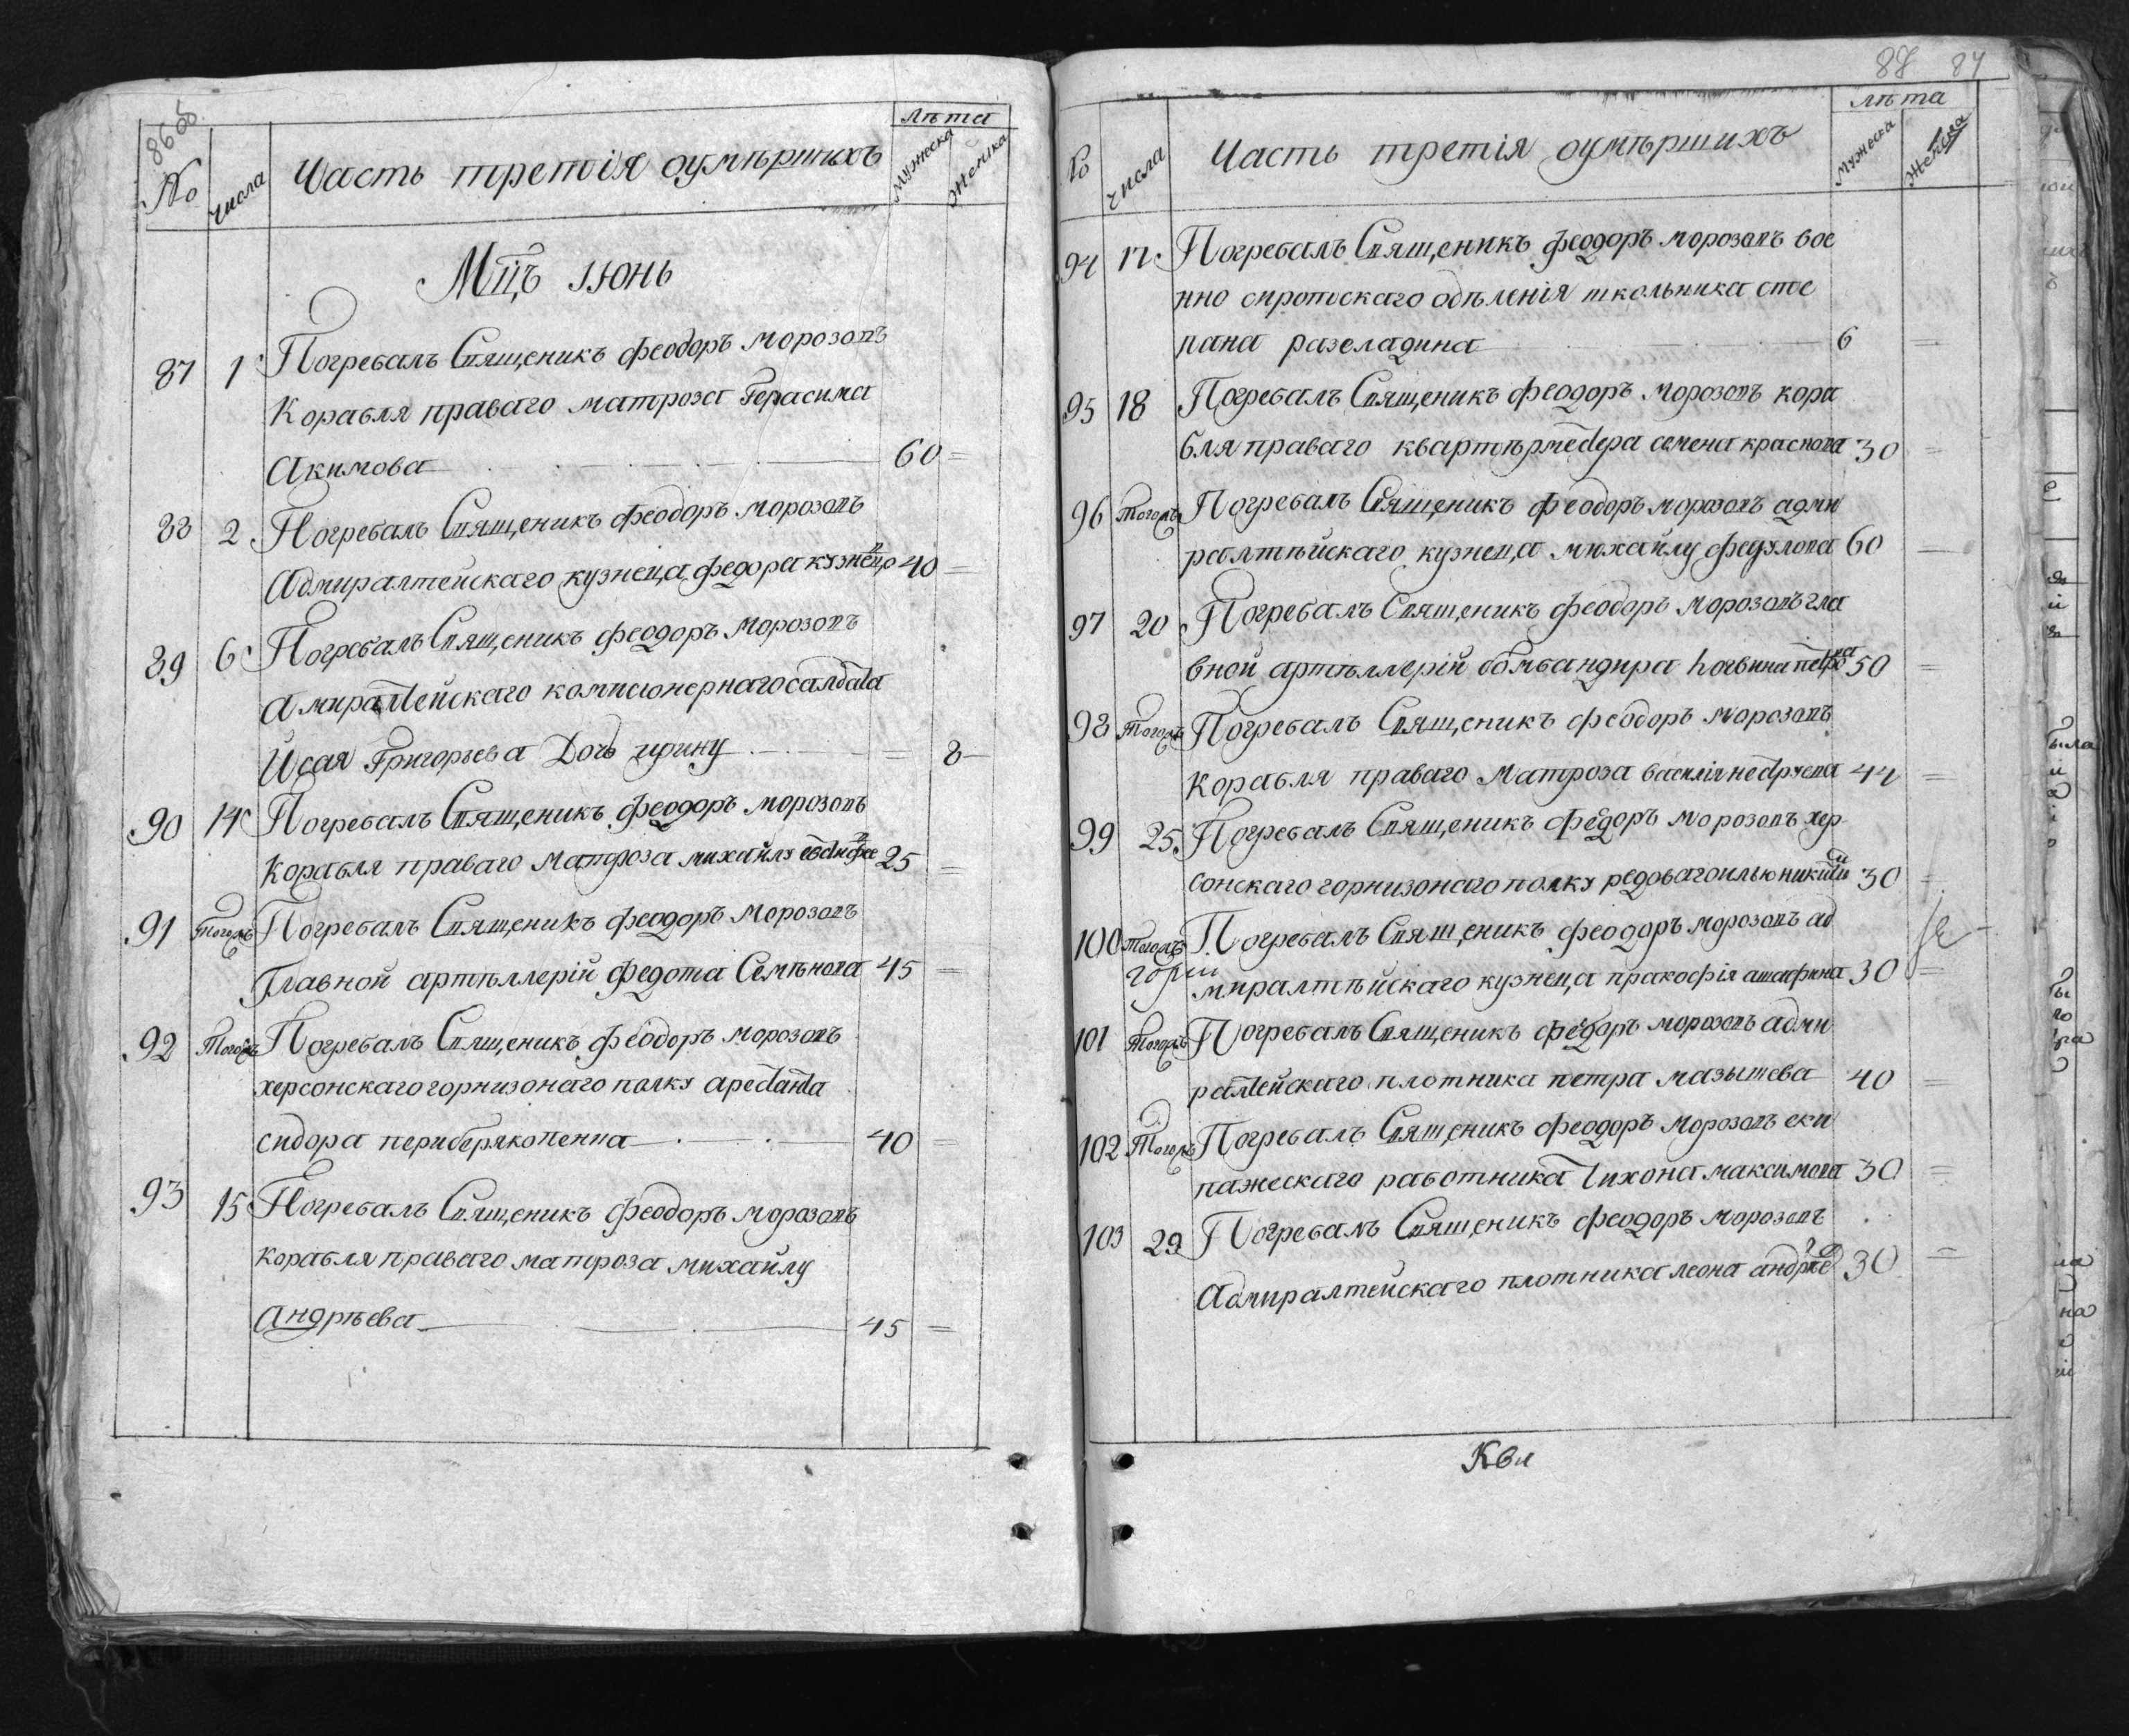 86об
№ числа Часть третія оумѣршихъ лѣта мужеска женска
Мцъ июнь
87 1 Погребалъ Священикъ феодоръ морозовъ
Корабля праваго матроза Герасима
Акимова 60 =
88 2 Погребалъ Священикъ феодоръ морозовъ
Адмиралтейскаго кузнеца федора кузнецо 40 =
89 6 Погребалъ Священикъ феодоръ морозовъ
Амиралтейскаго комисионернаго салдата
Исая Григорьева Дочь ирину = 8
90 14 Погребалъ Священикъ феодоръ морозовъ
Корабля праваго матроза михайлу 25 =
91 тогожъ Погребалъ Священикъ феодоръ морозовъ
Главной артѣллерій федота Семѣнова 45 =
92 тогожъ Погребалъ Священикъ феодоръ морозовъ
херсонскаго горнизонаго полку арестанта
сидора 40 =
93 15 Погребалъ Священикъ феодоръ морозовъ
корабля праваго матроза михайлу
андрѣева 45 =
87
№ числа Часть третія оумѣршихъ лѣта мужеска женска
94 17 Погребалъ Священикъ феодоръ морозовъ вое
нно сиротскаго одѣленія школьника сте
пана разгладина 6 =
95 18 Погребалъ Священикъ феодоръ морозовъ кора
бля праваго квартѣрместера семена краснова 30 =
96 тогожъ Погребалъ Священикъ феодоръ морозовъ адми
ралтѣйскаго кузнеца михайлу федулова 60
97 20 Погребалъ Священикъ феодоръ морозовъ гла
вной артѣллерій бомбандира логвина петрова 50 =
98 тогожъ Погребалъ Священикъ феодоръ морозовъ
Корабля праваго матроза василія 44 =
99 25 Погребалъ Священикъ феодоръ морозовъ хер
сонскаго горнизонаго полку редоваго илью никити 30 =
100 тогожъ Погребалъ Священикъ феодоръ морозовъ ад
миралтѣйскаго кузнеца пракофія 30 =
101 тогожъ Погребалъ Священикъ феодоръ морозовъ адми
ралтейскаго плотника петра мазышева 40 =
102 тогожъ Погребалъ Священикъ феодоръ морозовъ еки
пажескаго работника тихона максимова 30 =
103 29 Погребалъ Священикъ феодоръ морозовъ
Адмиралтейскаго плотника леона андрѣева 30 =